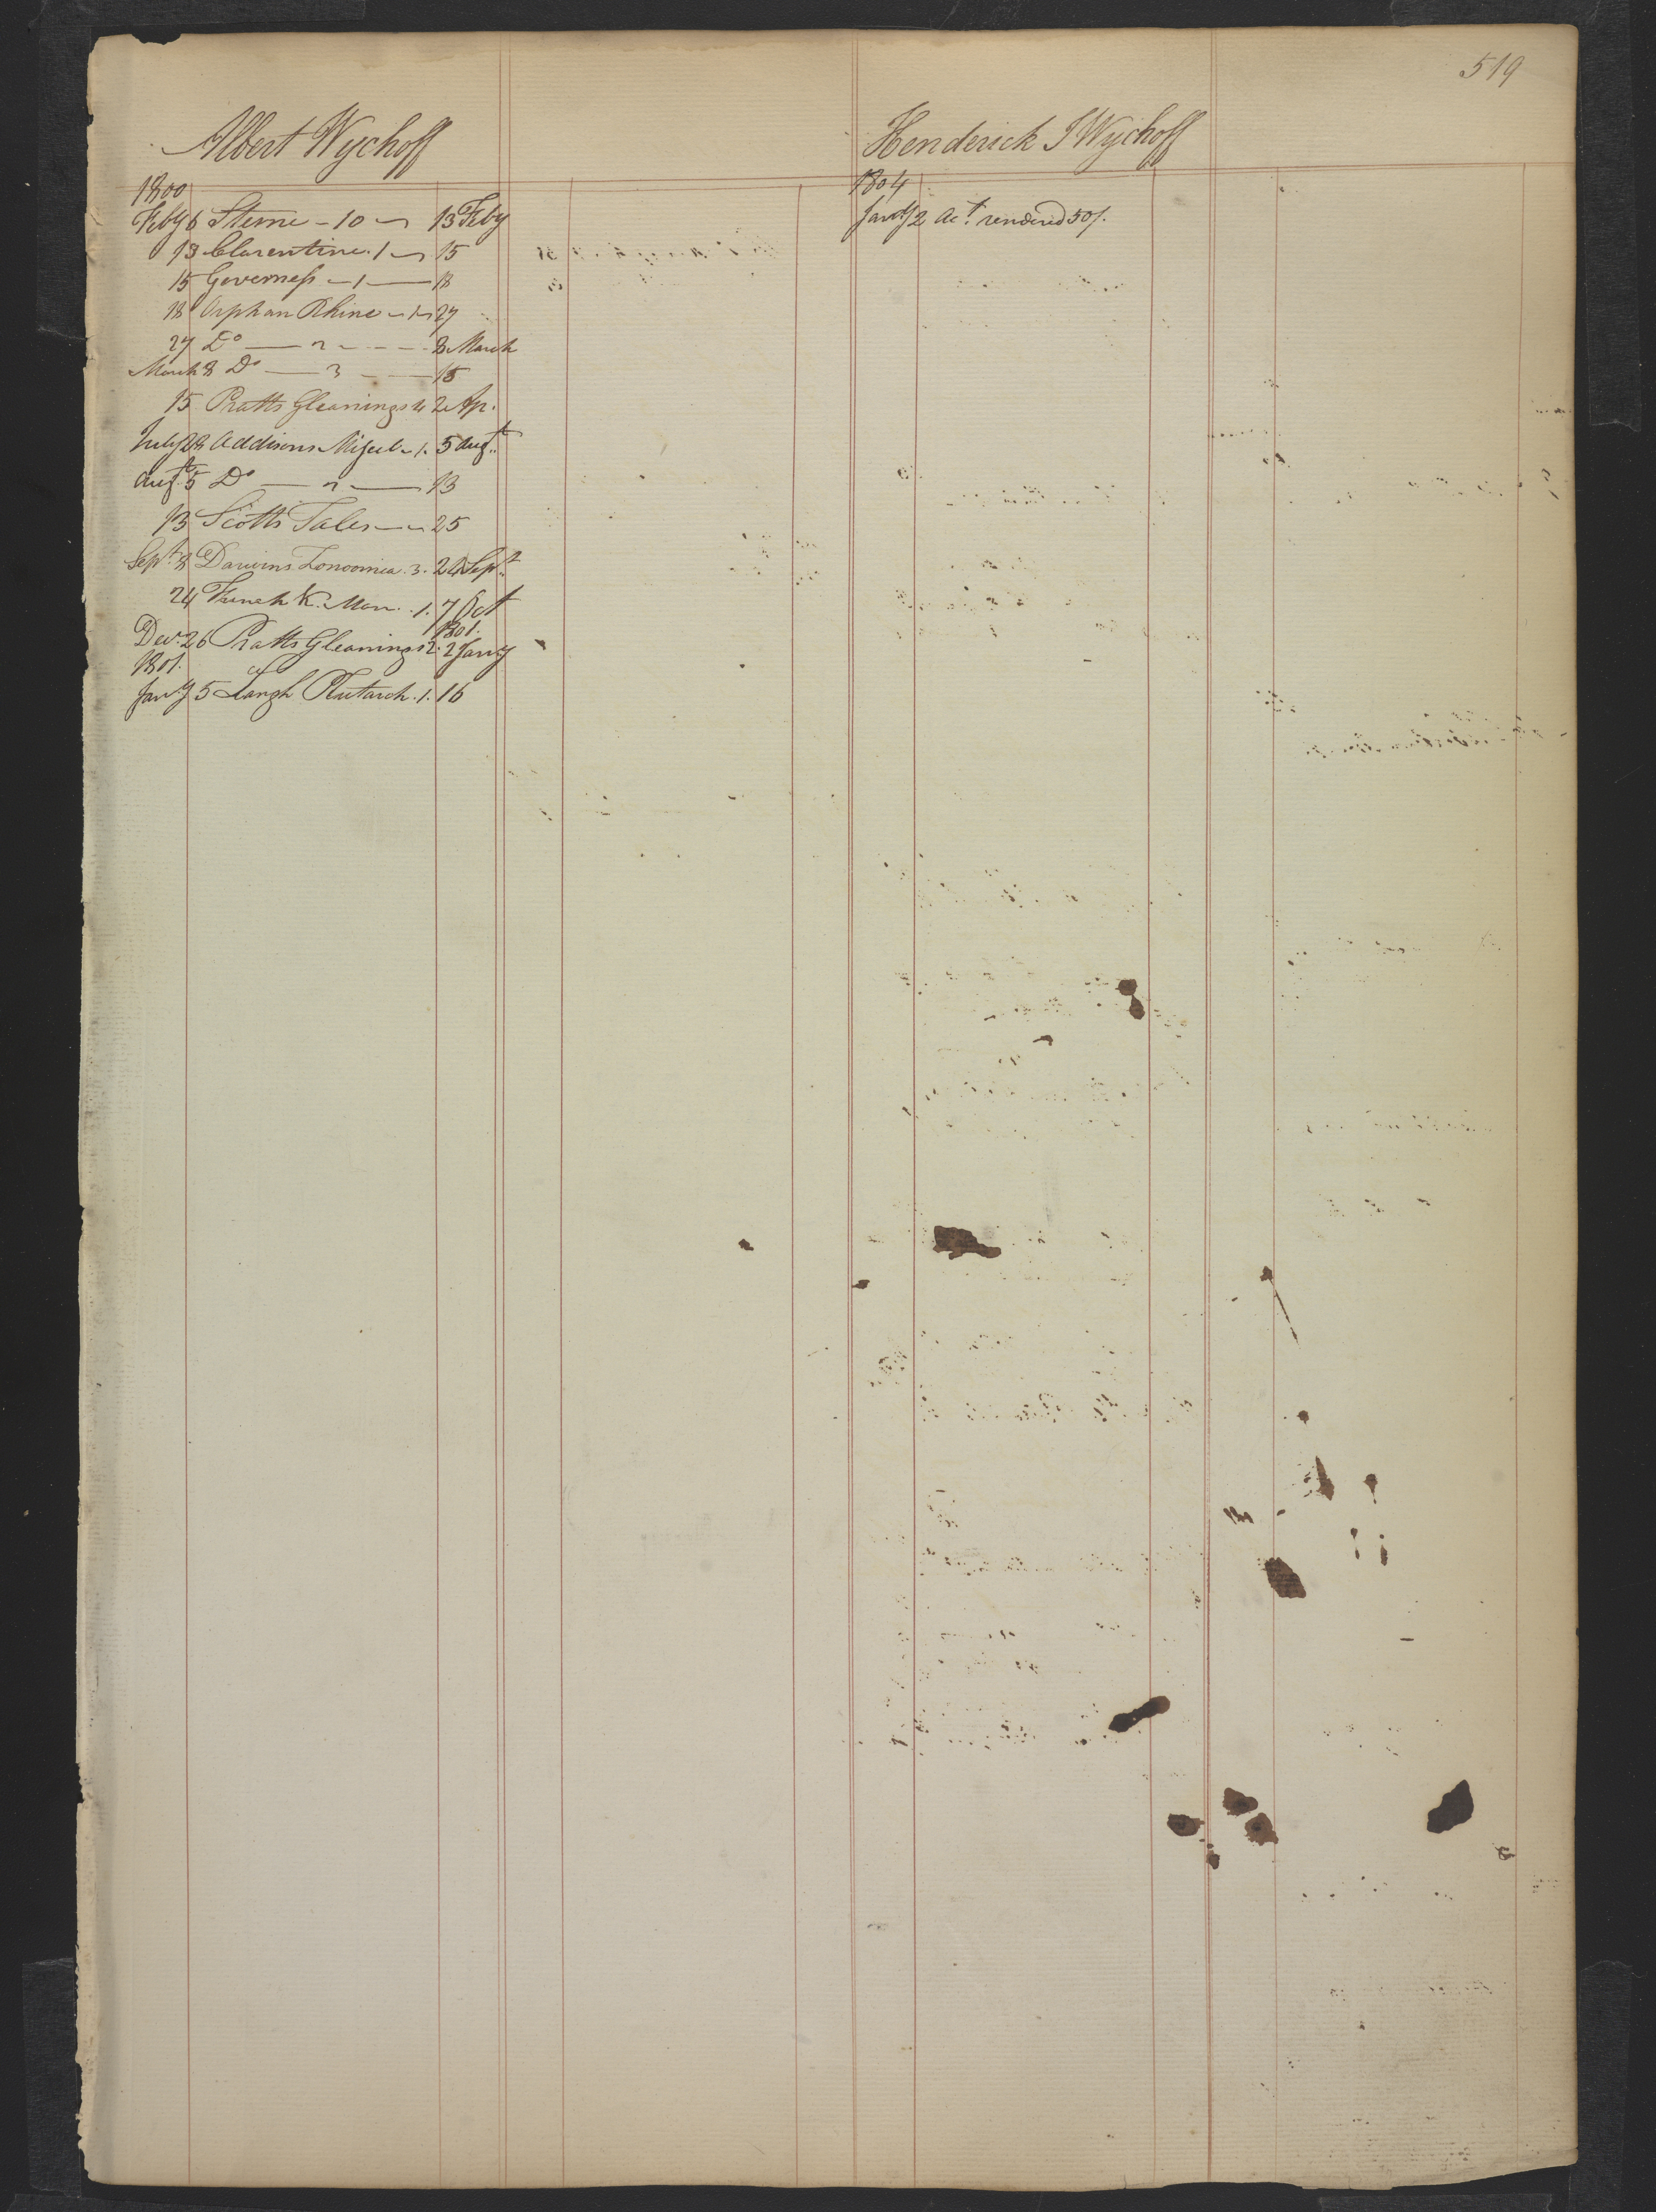 519
Albert Wychoff
1800
Feby 6 Sterne - 10 13 Feby
13 Clarentine. 1 15
15 Governess - 1 18
18 Orphan Rhine - 1 27
27 Do 2 8 March
March 8 Do 3 15
15 Pratts Gleanings 2 Ap.
July 28 Addisons Miscel - 1. 5 Augt
Augt 5 Do 2 13
13 Scotts Tales 25
Sept 8 Darwins Zonoomia. 3. 24 Sept
24 French K. Mon. . 1. 7 Oct
1801.
Decr. 26 Pratts Gleanings 2. 2 Jany
1801.
Jany 5 Langh Plutarch. 1. 16
Henderick I Wychoff
1804
Jany 2 Act. rendered 50/.